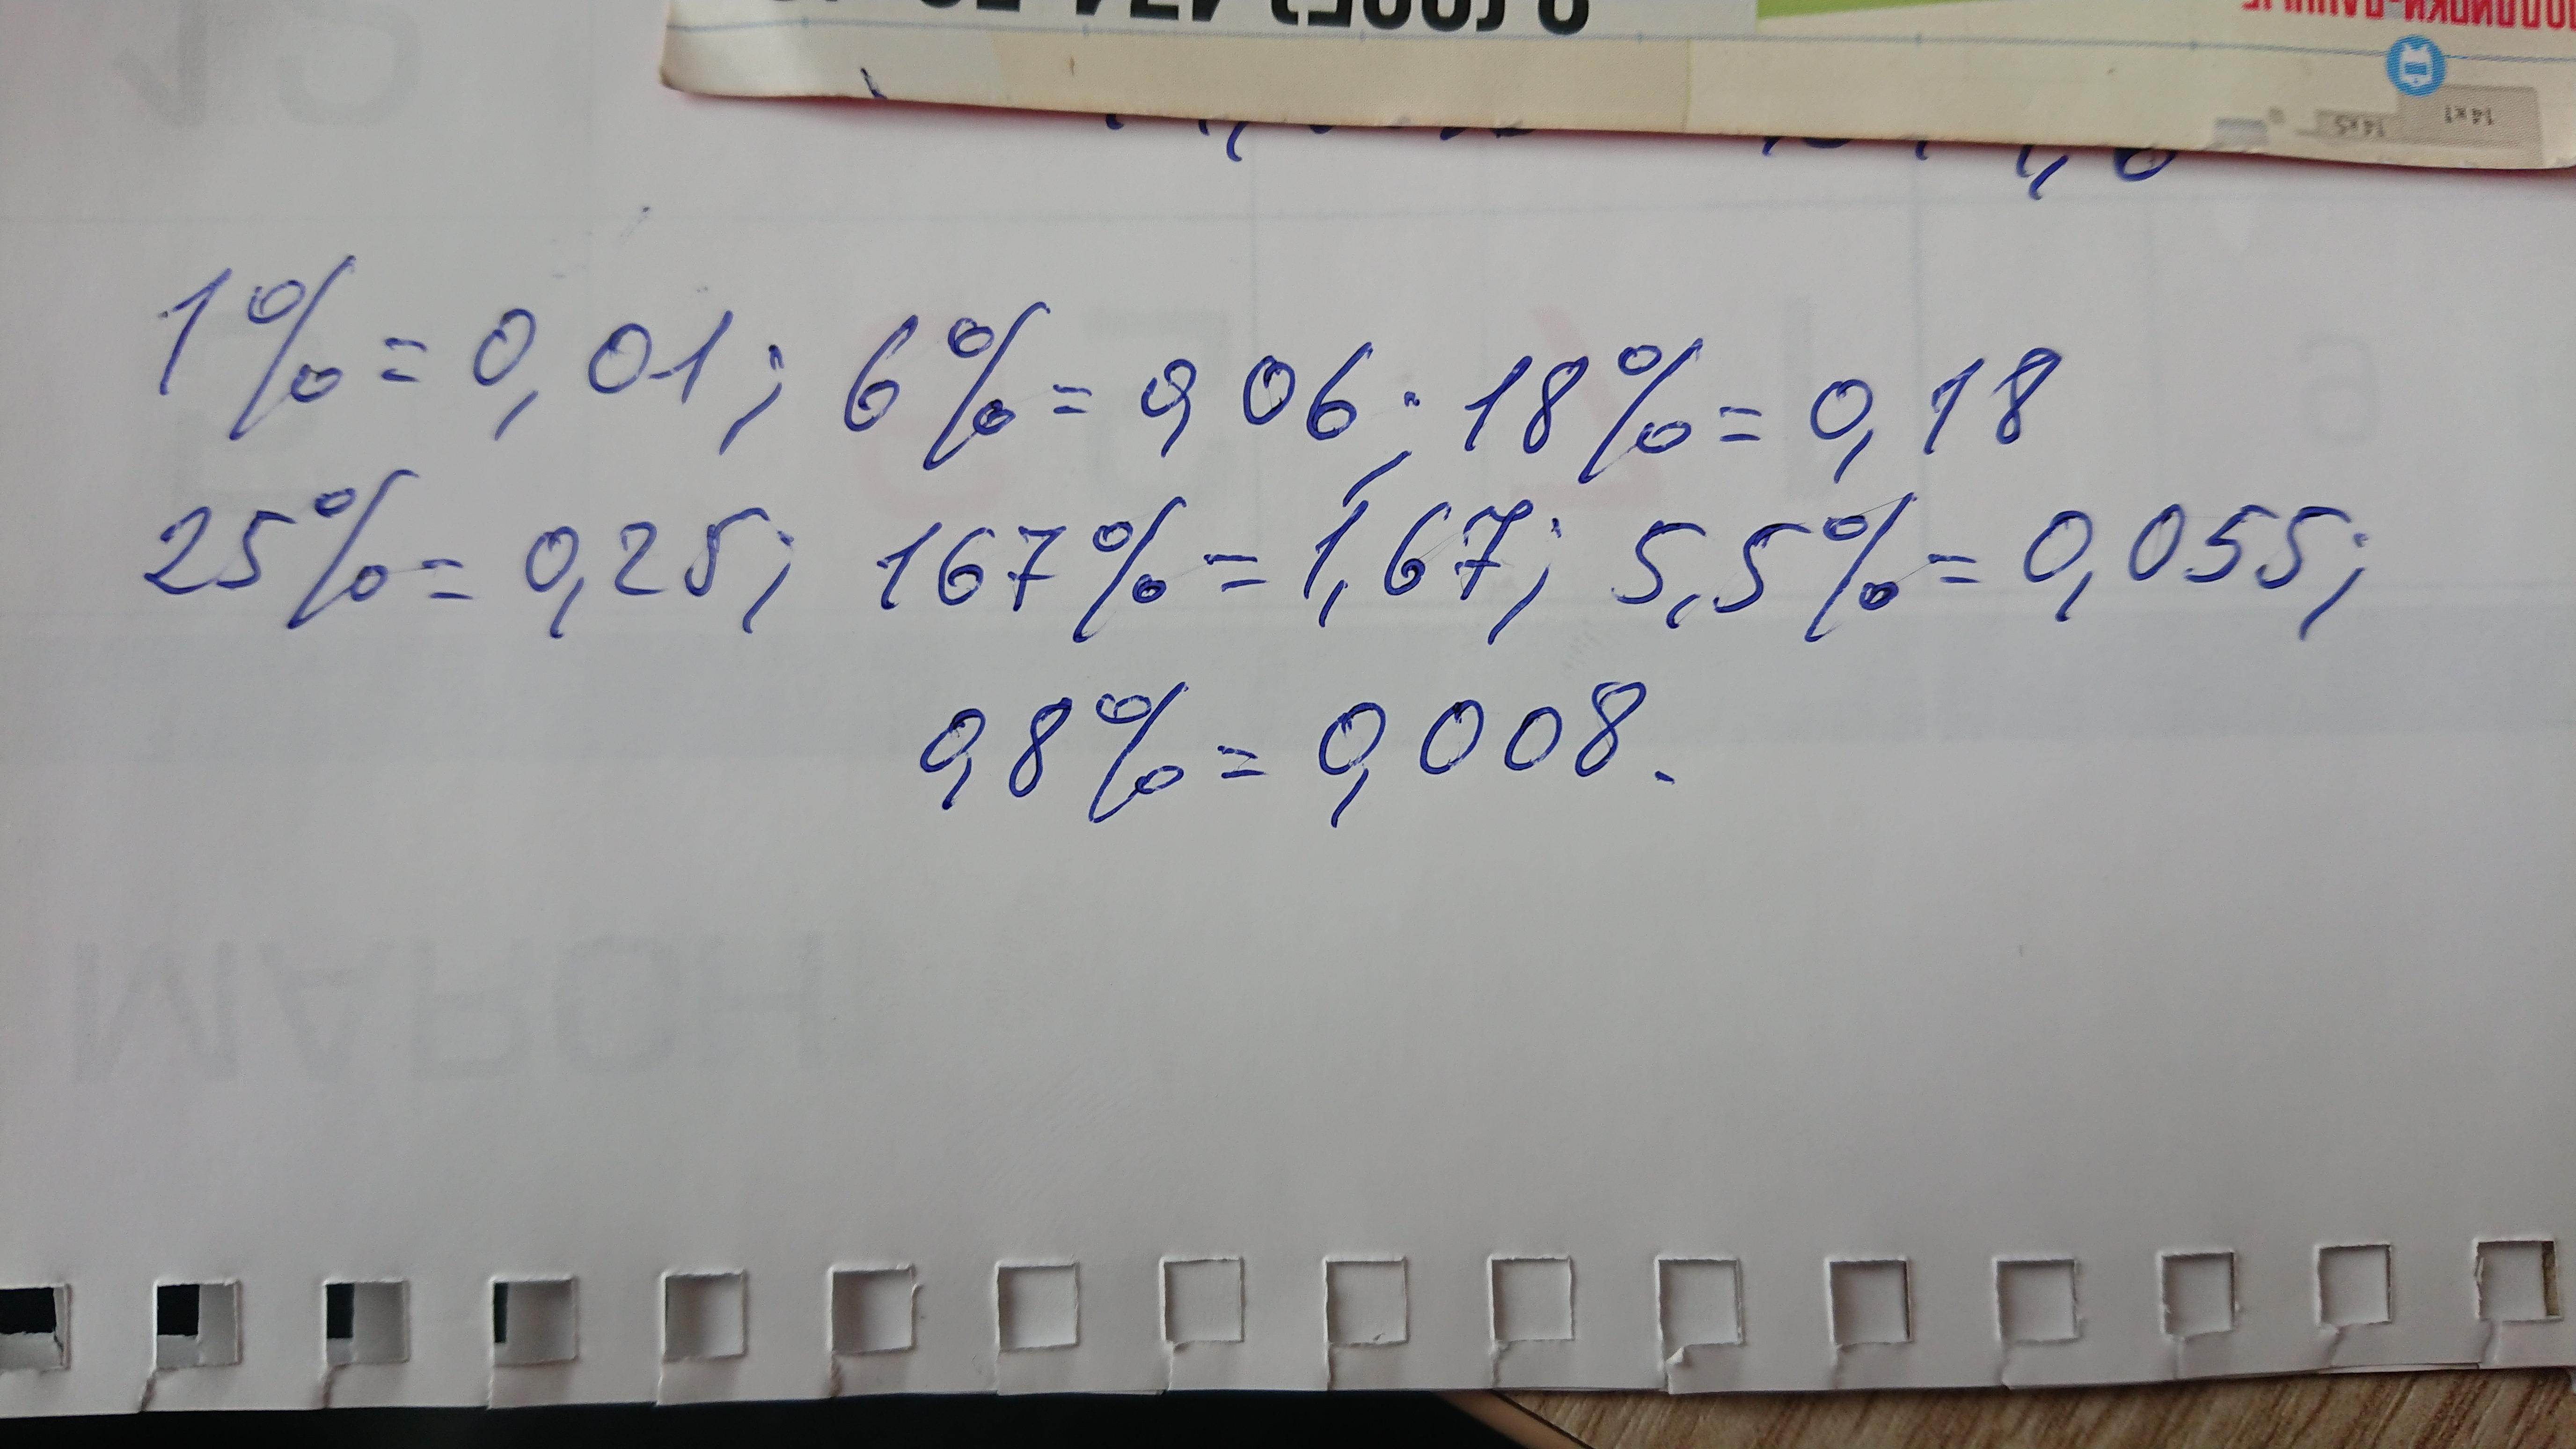 1% = 0,01; 6% = 0,06; 18% = 0,18
25% = 0,25; 167% = 1,67; 5,5% = 0,055;
0,8% = 0,008.
МАРСН